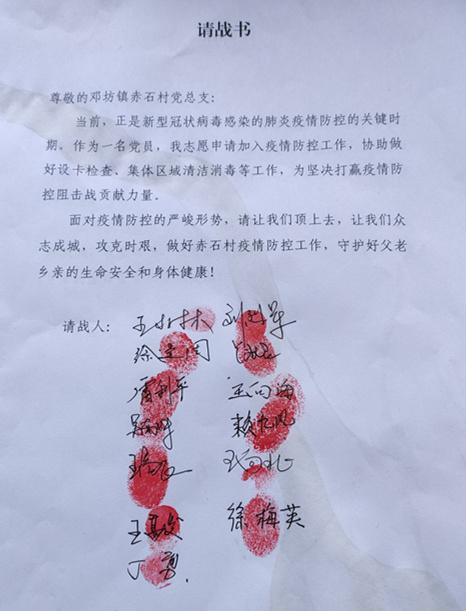 请战书
尊敬的邓坊镇赤石村党总支：
当前，正是新型冠状病毒感染的肺炎疫情防控的关键时
期。作为一名党员，我志愿申请加入疫情防控工作，协助做
好设卡检查、集体区域清洁消毒等工作，为坚决打赢疫情防
控阻击战贡献力量。
面对疫情防控的严峻形势，请让我们顶上去，让我们众
志成城，攻克时艰，做好赤石村疫情防控工作，守护好父老
乡亲的生命安全和身体健康！
请战人：
王向海
徐梅英
丁勇.